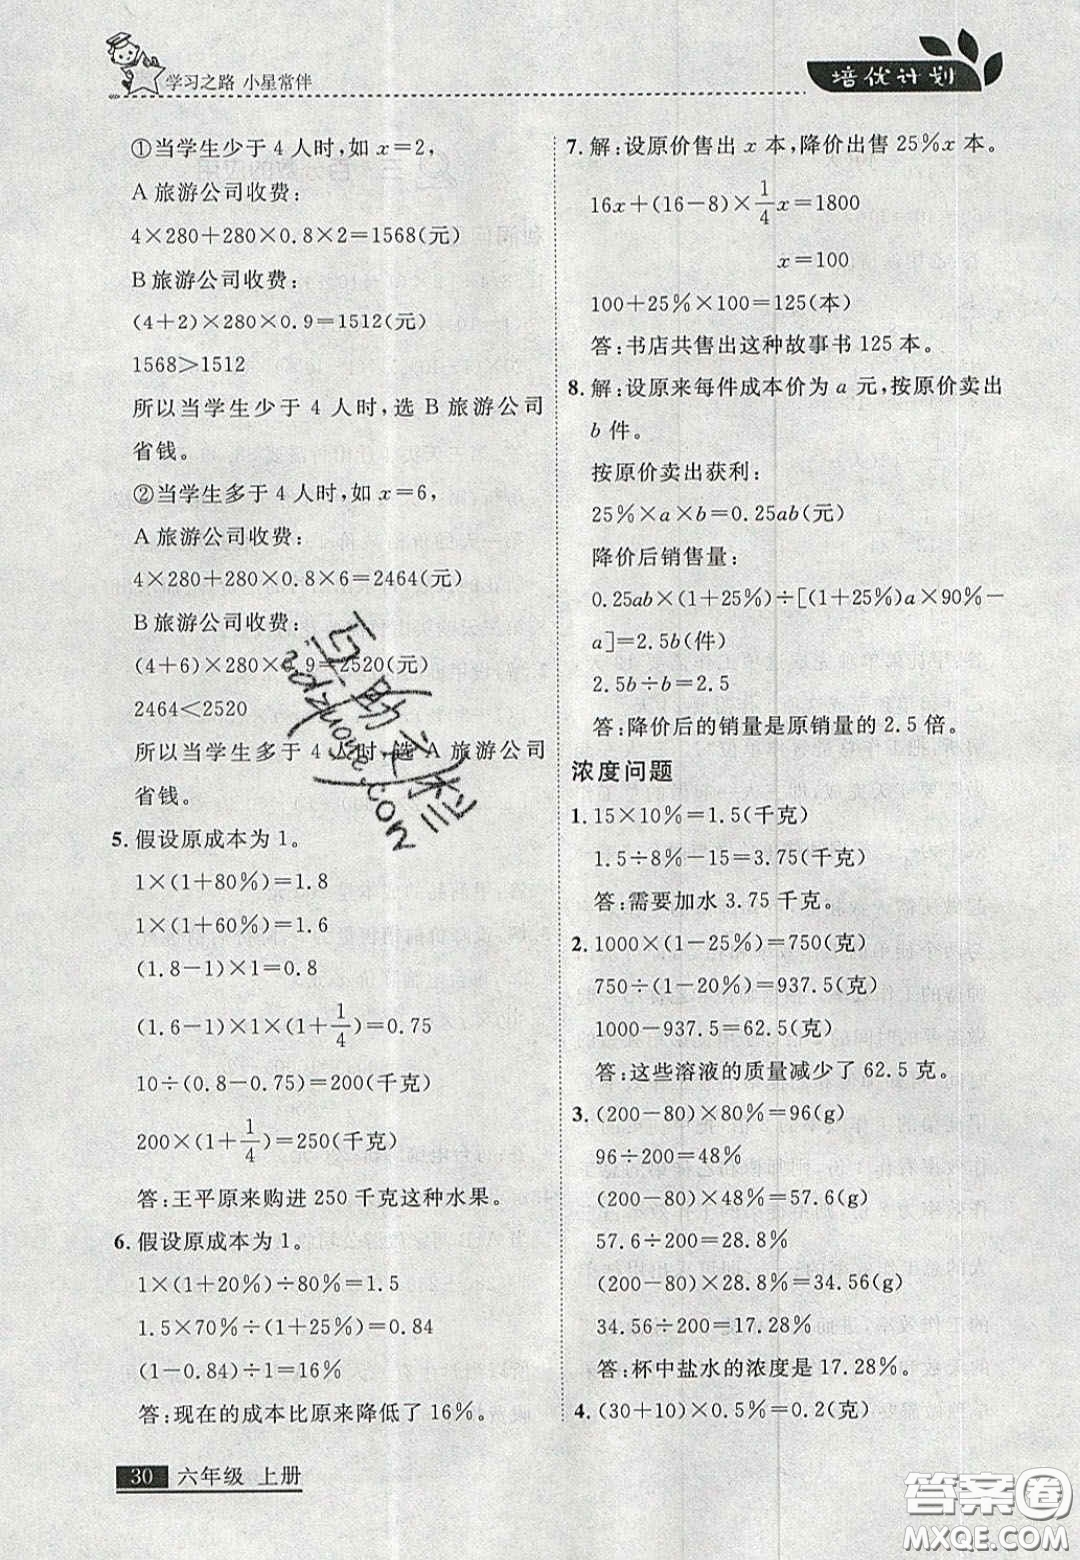 学习之路 小星常伴
培优计划
①当学生少于 4 人时,如 x=2,
A 旅游公司收费:
4×280+280×0.8×2=1568(元)
B 旅游公司收费:
(4+2)×280×0.9=1512(元)
1568>1512
所以当学生少于 4 人时,选 B 旅游公司
省钱。
②当学生多于 4 人时,如 x=6,
A 旅游公司收费:
4×280+280×0.8×6=2464(元)
B 旅游公司收费:
(4+6)×280×0.9=2520(元)
2464<2520
所以当学生多于 4 人时,选 A 旅游公司
省钱。
5. 假设原成本为 1。
1×(1+80%)=1.8
1×(1+60%)=1.6
(1.8-1)×1=0.8
(1.6-1)×1×(1+1/4)=0.75
10÷(0.8-0.75)=200(千克)
200×(1+1/4)=250(千克)
答:王平原来购进 250 千克这种水果。
6. 假设原成本为 1。
1×(1+20%)÷80%=1.5
1.5×70%÷(1+25%)=0.84
(1-0.84)÷1=16%
答:现在的成本比原来降低了 16%。
7. 解:设原价售出 x 本,降价出售 25%x 本。
16x+(16-8)×1/4x=1800
x=100
100+25%×100=125(本)
答:书店共售出这种故事书 125 本。
8. 解:设原来每件成本价为 a 元,按原价卖出
b 件。
按原价卖出获利:
25%×a×b=0.25ab(元)
降价后销售量:
0.25ab×(1+25%)÷[(1+25%)a×90%-
a]=2.5b(件)
2.5b÷b=2.5
答:降价后的销量是原销量的 2.5 倍。
浓度问题
1. 15×10%=1.5(千克)
1.5÷8%-15=3.75(千克)
答:需要加水 3.75 千克。
2. 1000×(1-25%)=750(克)
750÷(1-20%)=937.5(克)
1000-937.5=62.5(克)
答:这些溶液的质量减少了 62.5 克。
3. (200-80)×80%=96(g)
96÷200=48%
(200-80)×48%=57.6(g)
57.6÷200=28.8%
(200-80)×28.8%=34.56(g)
34.56÷200=17.28%
答:杯中盐水的浓度是 17.28%。
4. (30+10)×0.5%=0.2(克)
30 六年级 上册
答案圈
MXQE.COM